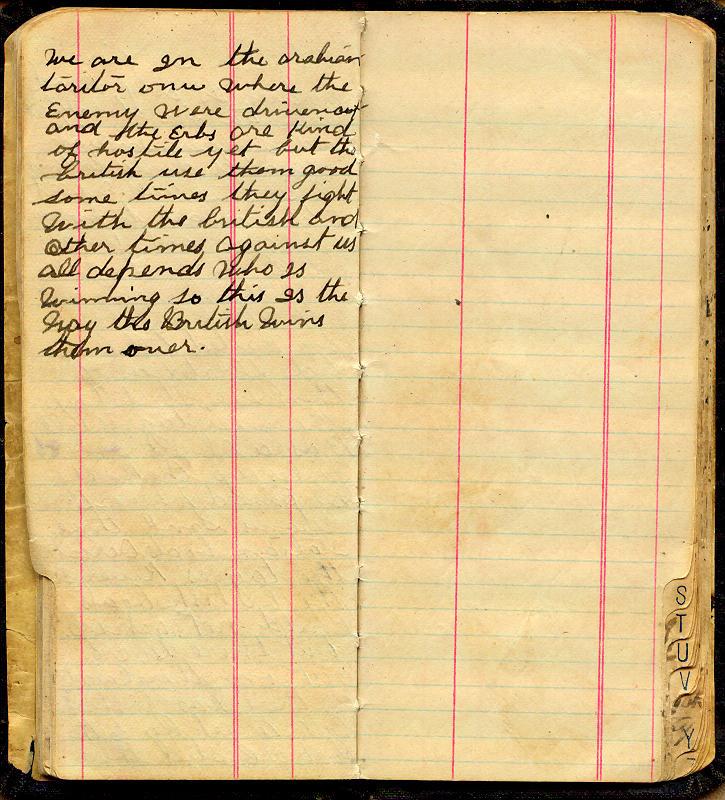 We are In the arabian
taritor onw where the
Enemy were drivenout
and the Erbs are kind
of hostile yet but the
british use them good
some times they fight
With the british and
Other times against us
all depends Who is
Winning so this Is the
Way the British Wins
them over.
S
T
U
V
Y